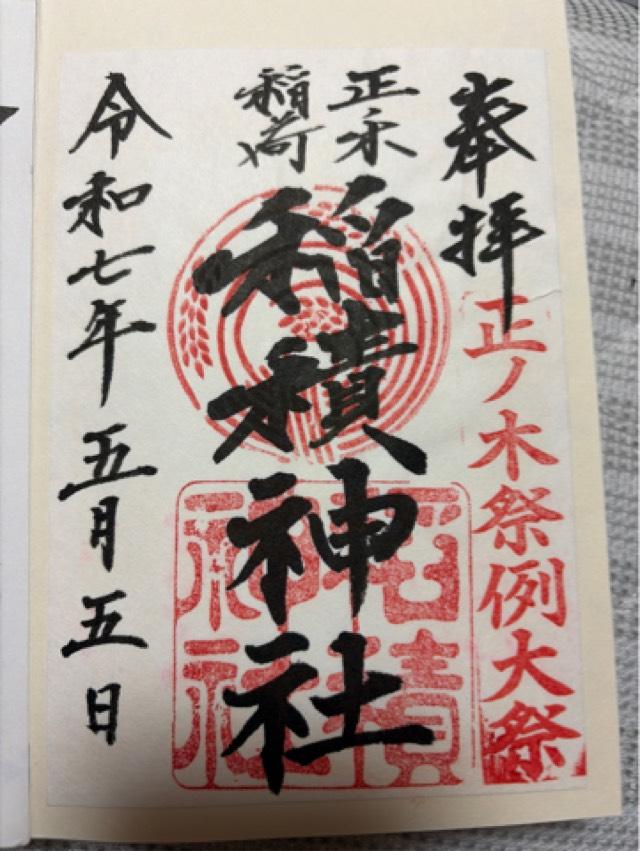 奉拝
正ノ木祭例大祭
正木
稲荷
稲積神社
稲積
神社
令和七年五月五日